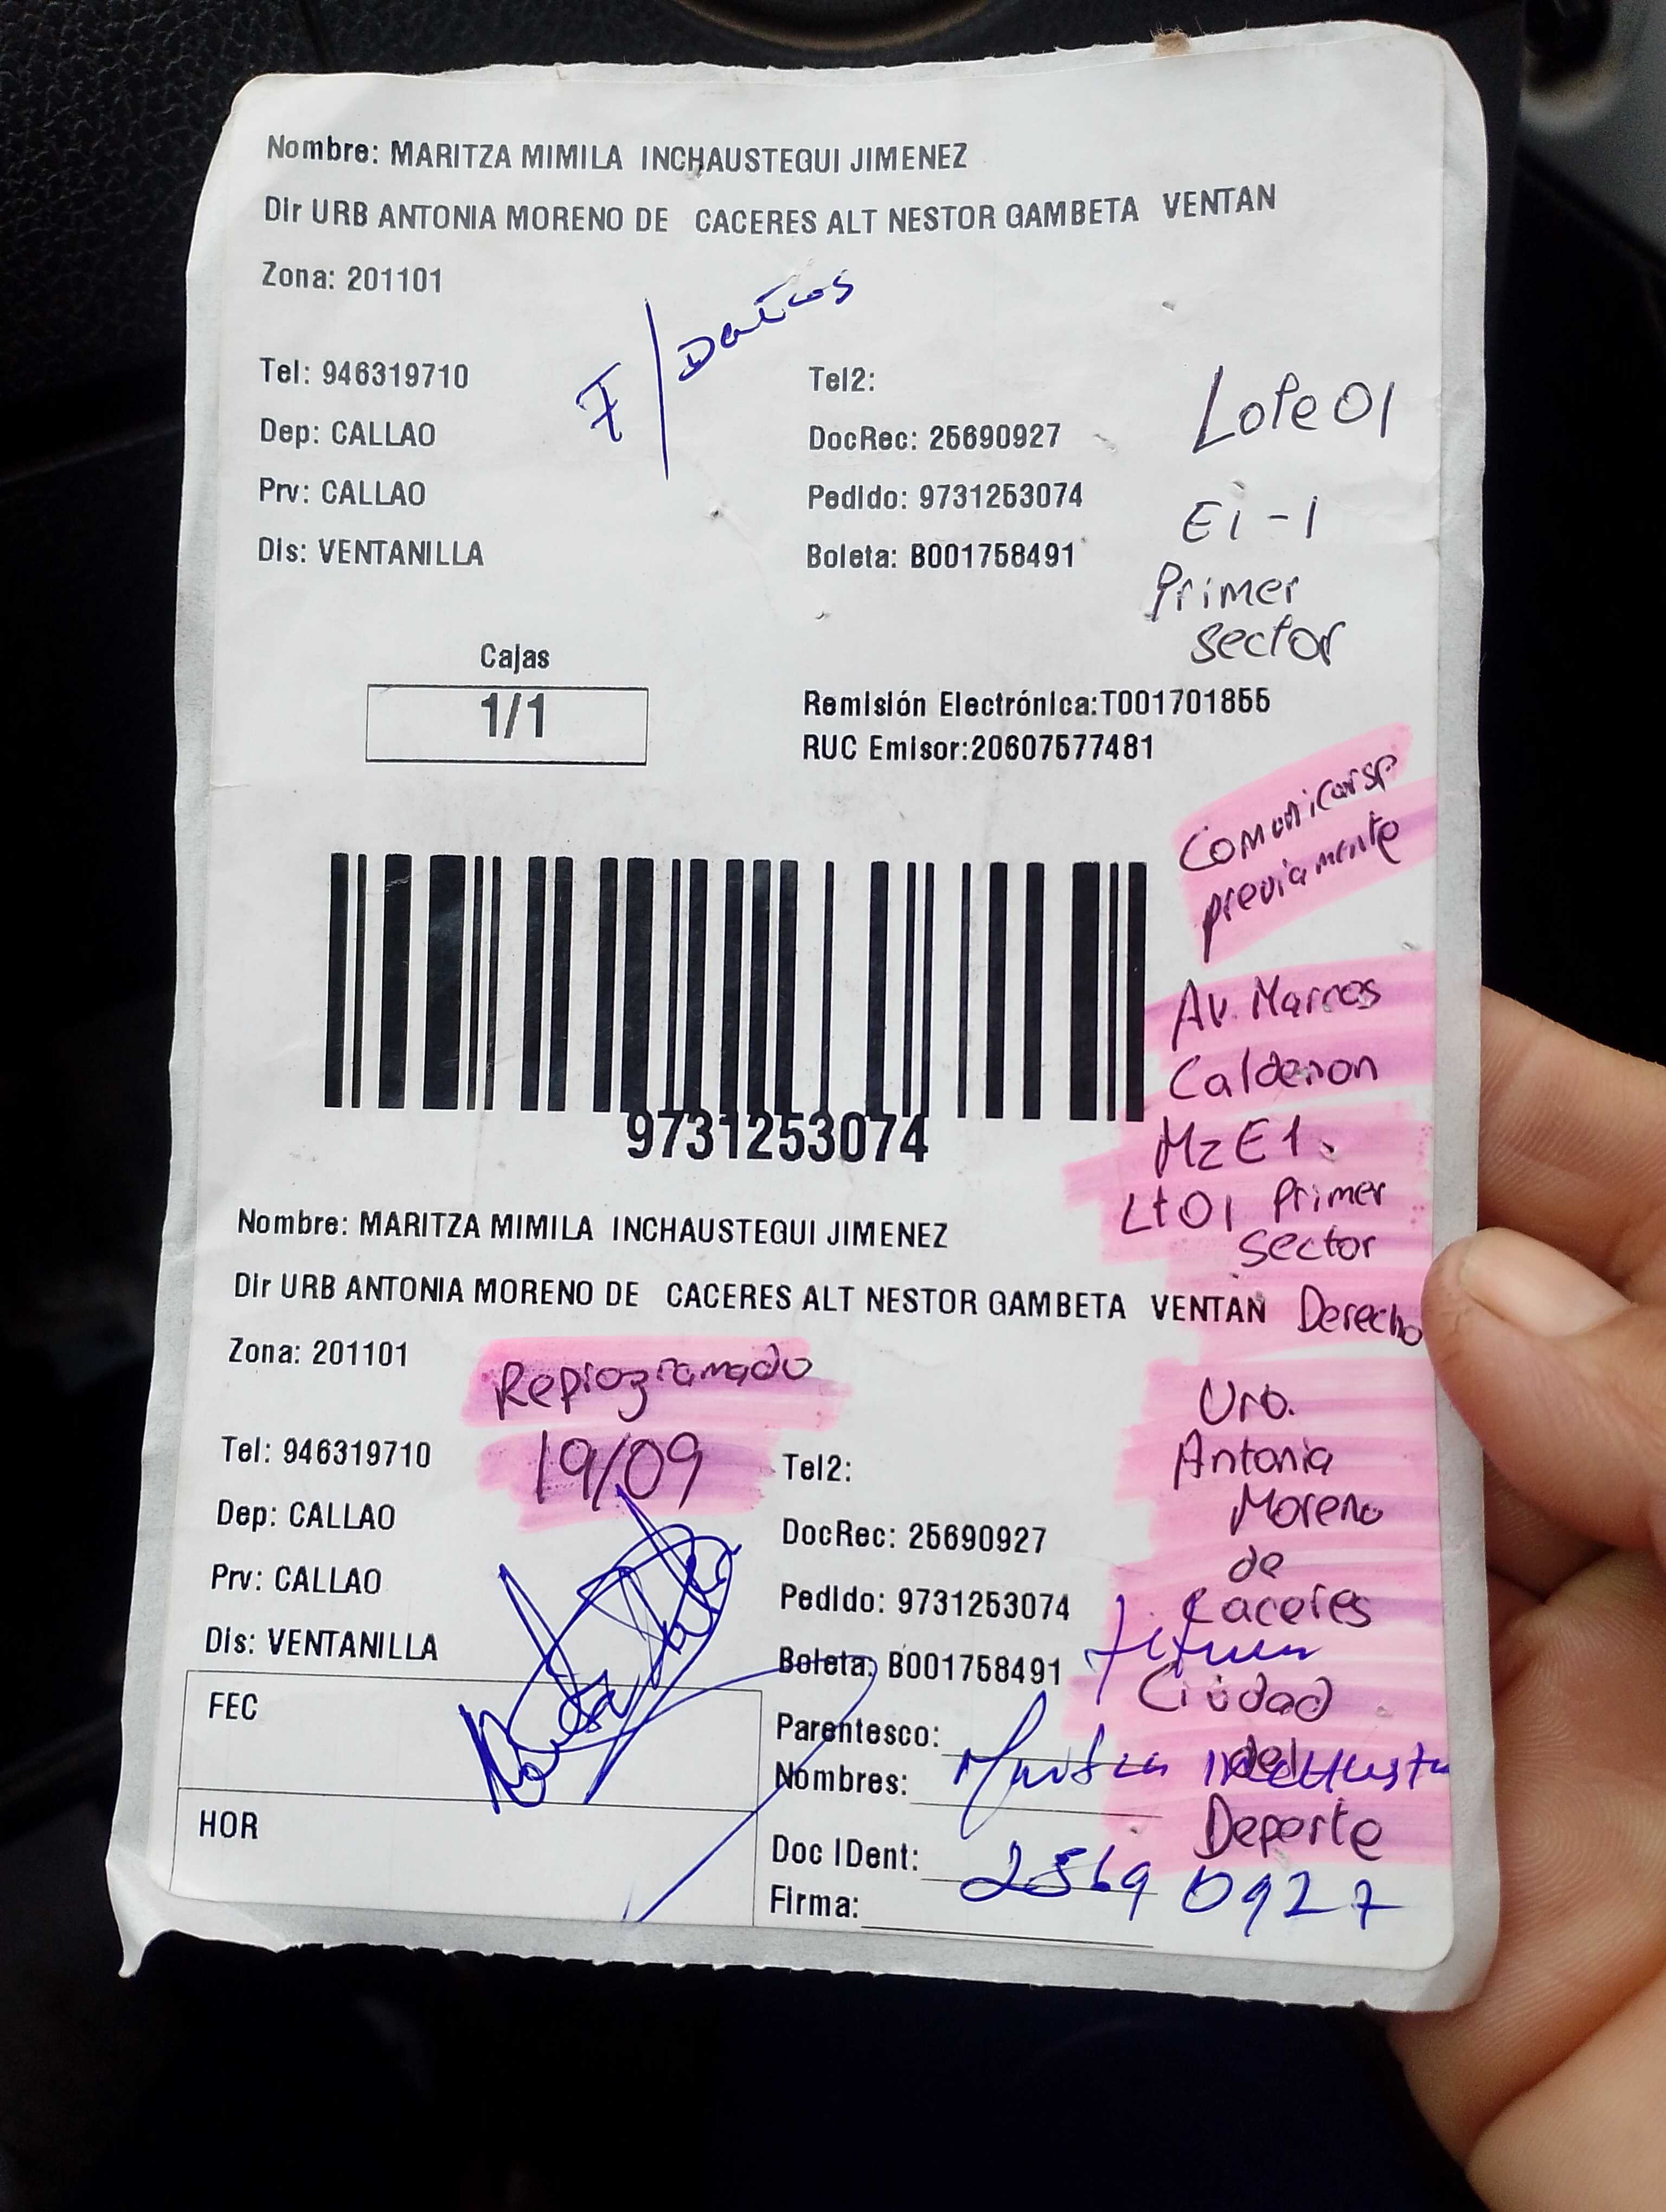 Nombre: MARITZA MIMILA INCHAUSTEGUI JIMENEZ
Dir URB ANTONIA MORENO DE CACERES ALT NESTOR GAMBETA VENTAN
Zona: 201101
F/Datos
Tel: 946319710
Tel2:
Dep: CALLAO
DocRec: 25690927
Prv: CALLAO
Pedido: 9731253074
Dis: VENTANILLA
Boleta: B001758491
Lote 01
Ei-1
Primer
sector
Cajas
1/1
Remisión Electrónica:T001701855
RUC Emisor:20607577481
Comunicarse
previamente
9731253074
Av. Marcos
Calderon
Mz E1.
Lt 01 Primer
sector
Derecho
Urb.
Antonia
Moreno
de
Caceres
Ciudad
del
Deporte
Nombre: MARITZA MIMILA INCHAUSTEGUI JIMENEZ
Dir URB ANTONIA MORENO DE CACERES ALT NESTOR GAMBETA VENTAN
Zona: 201101
Reprogramado
19/09
Tel: 946319710
Tel2:
Dep: CALLAO
DocRec: 25690927
Prv: CALLAO
Pedido: 9731253074
Dis: VENTANILLA
Boleta: B001758491
FEC
Parentesco:
Nombres: Maritza
HOR
Doc IDent: 25690927
Firma: